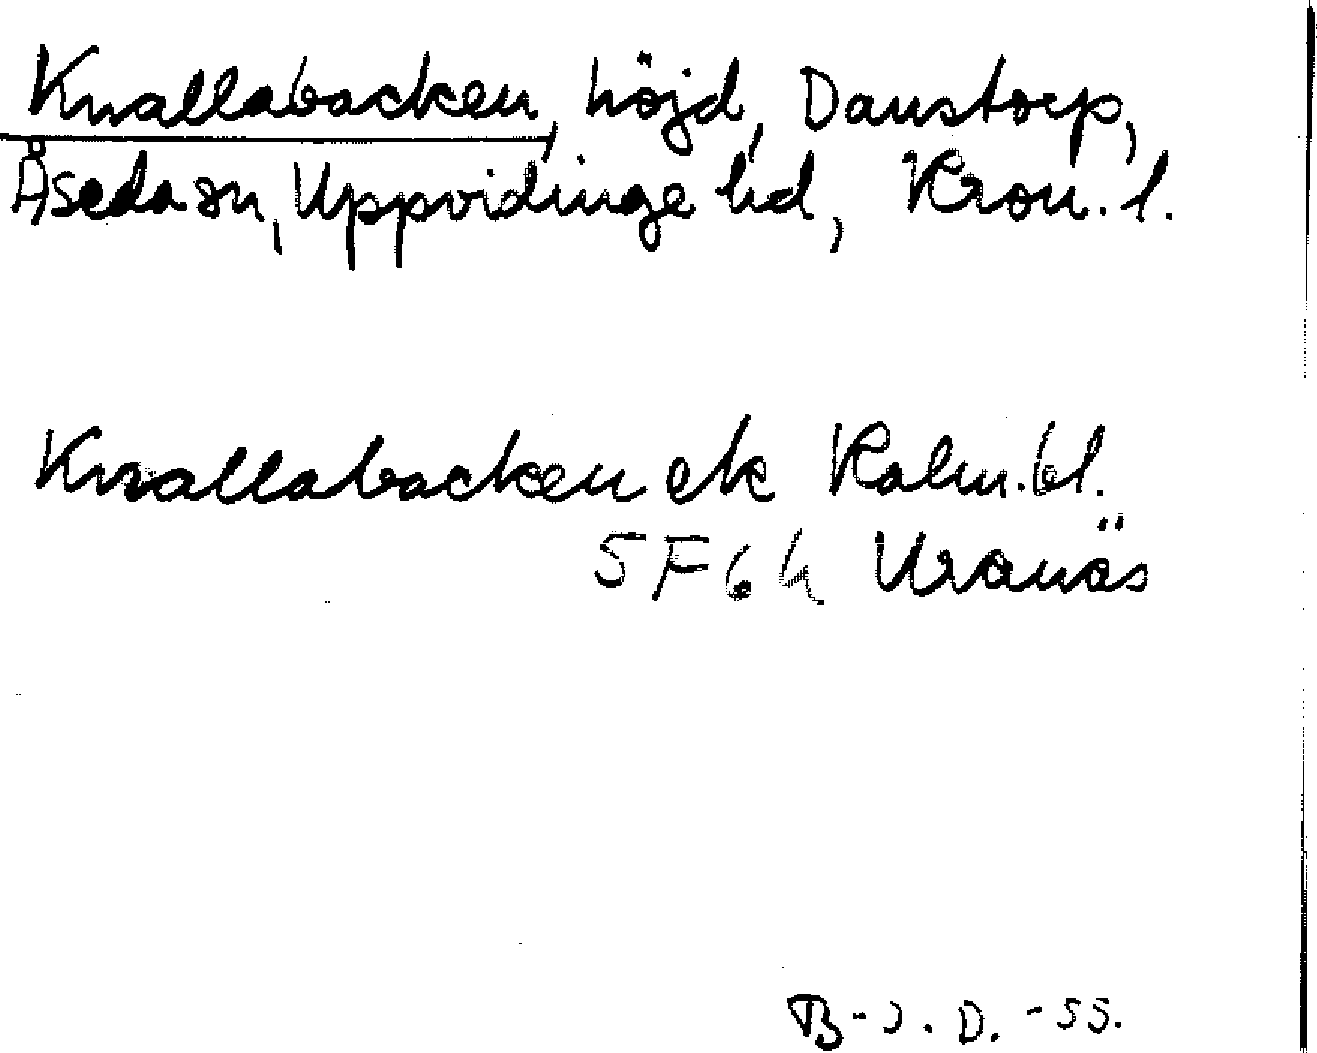 Knallabacken, höjd, Daustorp,
Åseda sn, Uppvidinge hd, Kron. l.
Knallabacken ek Kalm.bl.
5F6h Uranäs
B-J. D. -55.